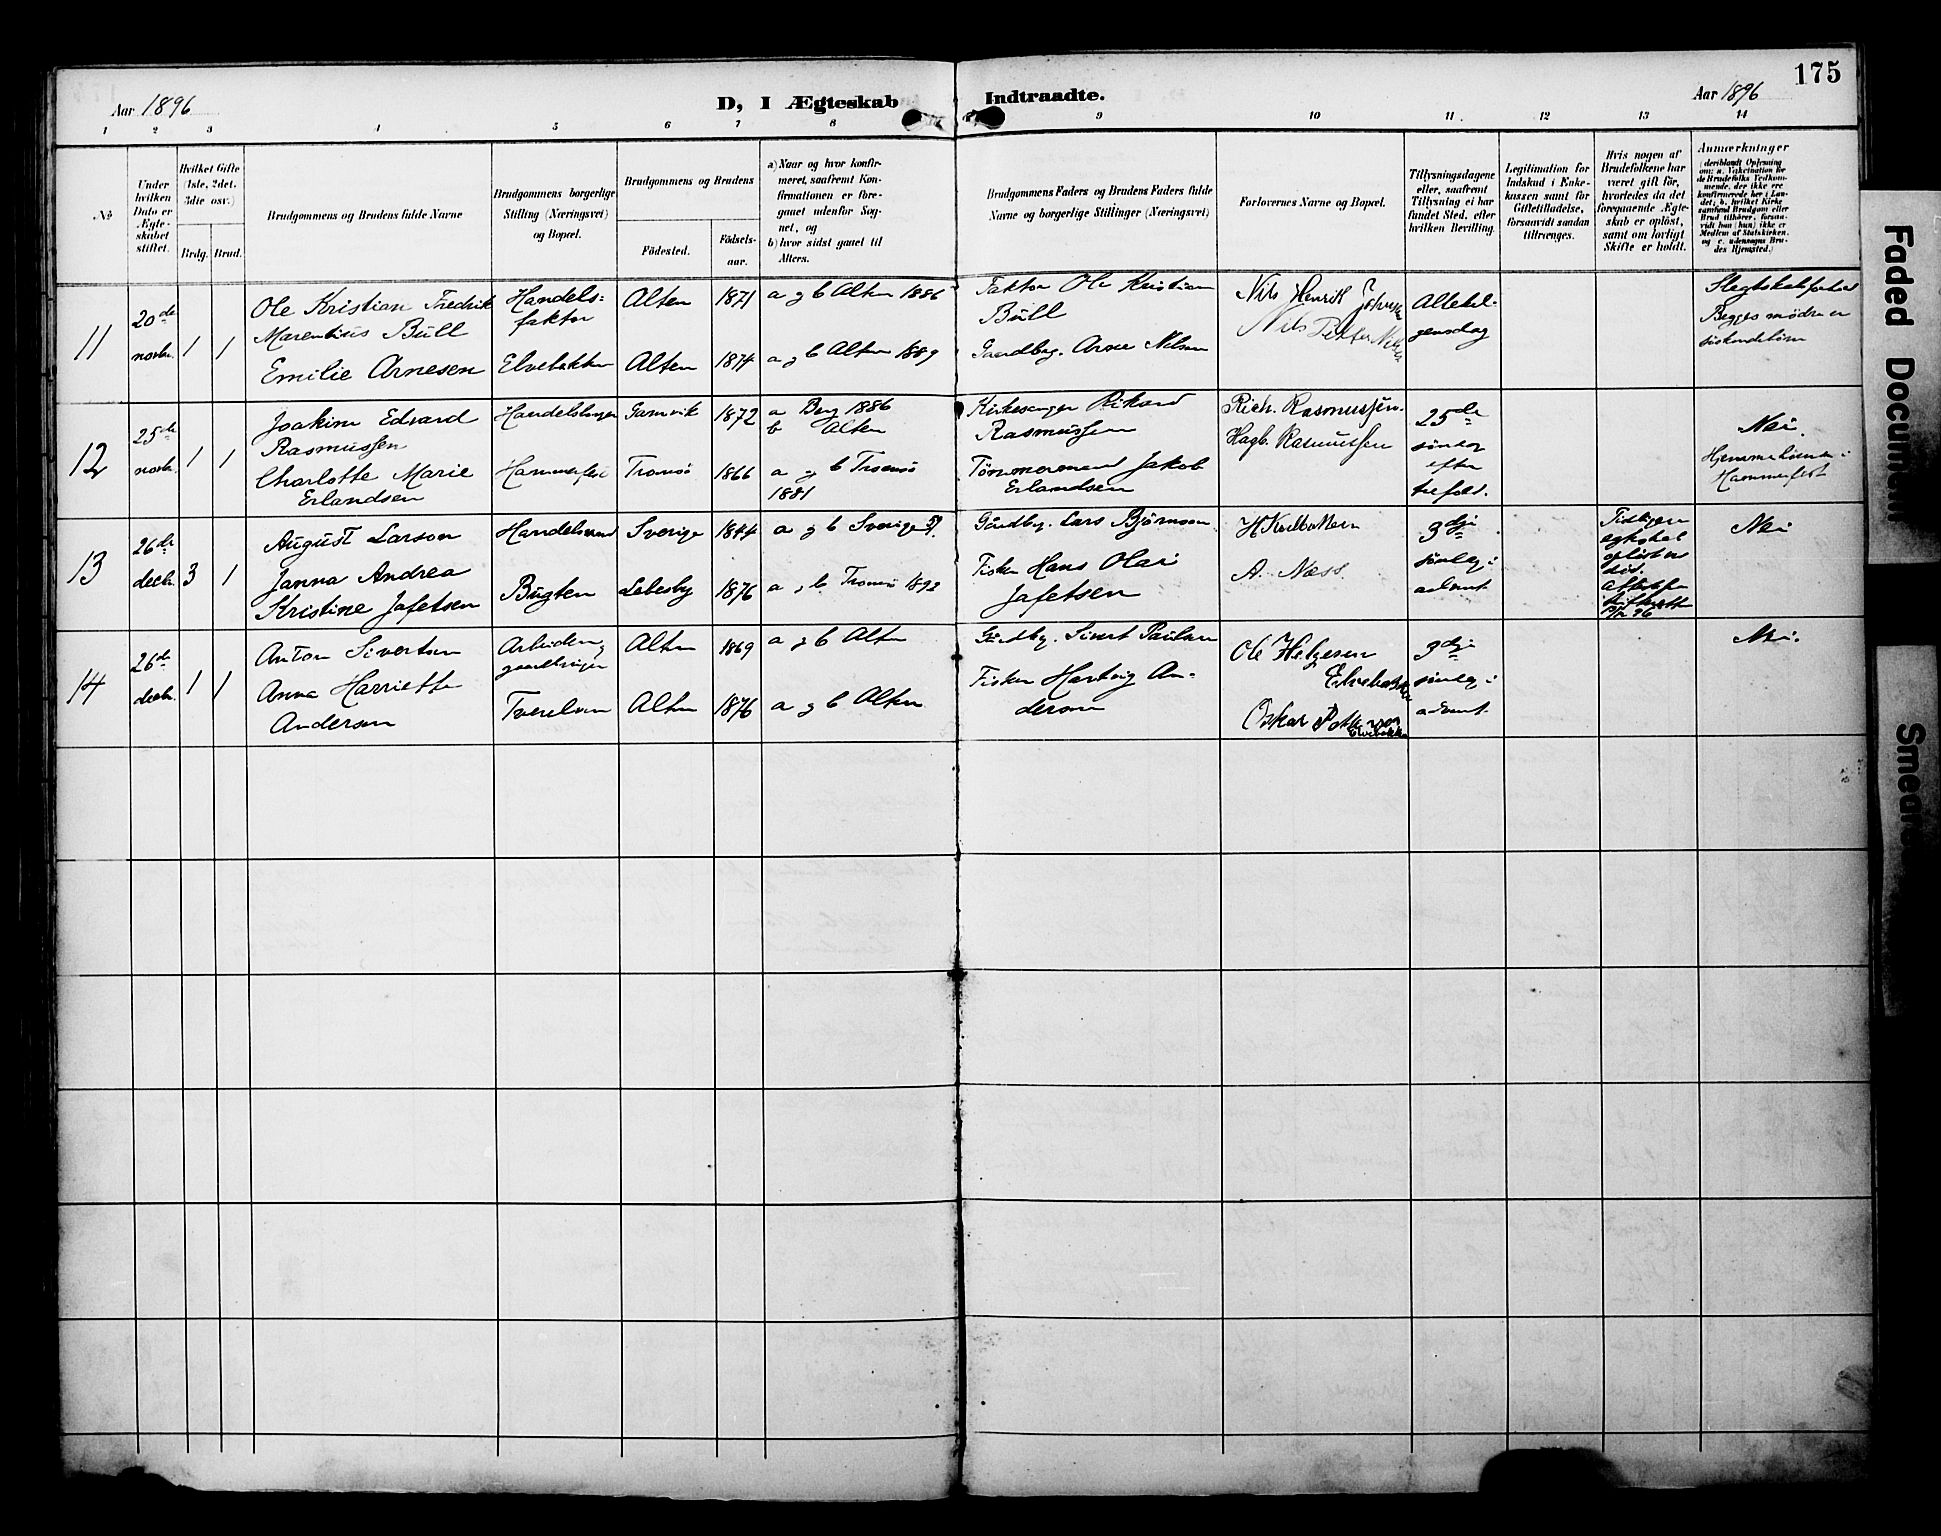 175
Aar 1896
D, I Ægteskab Indtraadte.
Aar 1896
1 2 3 4 5 6 7 8 9 10 11 12 13 14
№
Under
hvilken
Dato er
Ægte-
skabet
stiftet.
Hvilket Gifte
(1ste, 2det,
3die osv.)
Brdg.
Brud.
Brudgommens og Brudens fulde Navne
Brudgommens borgerlige
Stilling (Næringsvei)
og Bopæl.
Brudgommens og Brudens
Födested.
Födsels-
aar.
a) Naar og hvor konfir-
meret, saafremt Kon-
firmationen er fore-
gaaet udenfor Sog-
net, og
b) hvor sidst gaaet til
Alters.
Brudgommens Faders og Brudens Faders fulde
Navne og borgerlige Stillinger (Næringsvei)
Forlovernes Navne og Bopæl.
Tillysningsdagene
eller, saafremt
Tillysning ei har
fundet Sted, efter
hvilken Bevilling.
Legitimation for
Indskud i Enke-
kassen samt for
Giftetilladelse,
forsaavidt saadan
tiltrænges.
Hvis nogen af
Brudefolkene har
været gift før,
hvorledes da det
foregaaende Ægte-
skab er opløst,
samt om lovligt
Skifte er holdt.
Anmærkninger
(deriblandt Oplysning
om: a. Vakcination for
de Brudefolks Vedkom-
mende, der ikke ere
konfirmerede her i Lan-
det, b. hvilket Kirke
samfund Brudgom eller
Brud tilhører, forsaa-
vidt han (hun) ikke er
Medlem af Statskirken,
og c. udensogns Bru-
des Hjemsted.)
11
20de
novbr.
1
1
Ole Kristian Fredrik
Marentius Büll
Emilie Arnesen
Handels-
faktor
Elvebakken
Alten
Alten
1871
1874
a og b Alten 1886
a og b Alten 1889
Faktor Ole Kristian
Büll
Gaardbrg. Arne Nilsen
Nils Henrik
Nils Petter
Allehel-
gensdag
Slegtskabsforhold
Begges mödre er
12
25de
novbr.
1
1
Joakim Edvard
Rasmussen
Charlotte Marie
Erlandsen
Hammerfest
Gamvik
Tromsö
1872
1866
a Berg 1886
b Alten
a og b Tromsö
1881
Kirkesanger Rikard
Rasmussen
Tömmermand Jakob
Erlandsen
Rich. Rasmussen.
Hagb. Rasmussen
25de
söndag
efter
trefold.
Nei.
Hjemmehörende i
Hammerfest
13
26de
decbr.
3
1
August Larson
Janna Andrea
Kristine Jafetsen
Handelsmand
Bugten
Sverige
Lebesby
1844
1876
a og b Sverige 59.
a og b Tromsö 1892
Gaardbg. Lars Björnson
Fisker Hans Olai
Jafetsen
H Kvelbakken
A. Næss
3die
söndag i
advent
Nei
14
26de
decbr.
1
1
Anton Sivertsen
Anna Harriette
Andersen
Arbeider,
Tverelven
Alten
Alten
1869
1876
a og b Alten
a og b Alten
Gaardbg. Sivert Paulsen
Fisker Hartvig An-
dersen
Ole Helgesen
Elvebakken
Oskar Pettersen
Elvebakken
3die
söndag i
advent
Nei.
Faded Document